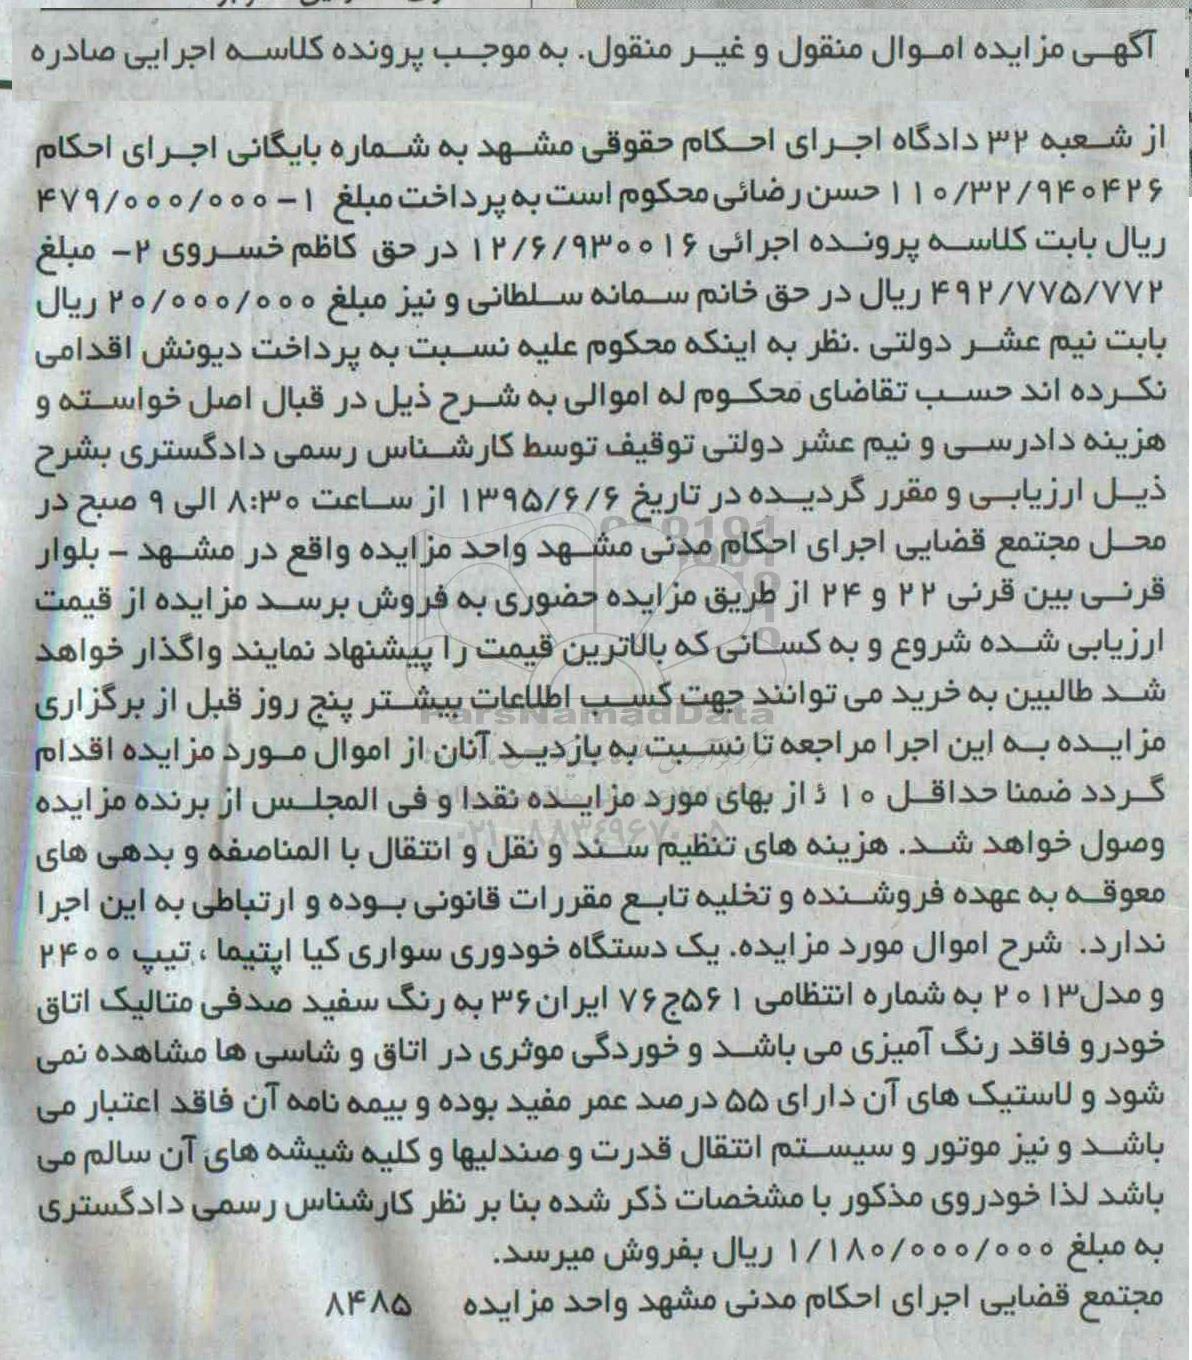 آگهی مزایده اموال منقول و غیر منقول. به موجب پرونده کلاسه اجرایی صادره
از شعبه ۳۲ دادگاه اجرای احکام حقوقی مشهد به شماره بایگانی اجرای احکام
۱۱۰/۳۲/۹۴۰۴۲۶ حسن رضائی محکوم است به پرداخت مبلغ ۱- ۴۷۹/۰۰۰/۰۰۰
ریال بابت کلاسه پرونده اجرائی ۱۲/۶/۹۳۰۰۱۶ در حق کاظم خسروی ۲- مبلغ
۴۹۲/۷۷۵/۷۷۲ ریال در حق خانم سمانه سلطانی و نیز مبلغ ۲۰/۰۰۰/۰۰۰ ریال
بابت نیم عشر دولتی .نظر به اینکه محکوم علیه نسبت به پرداخت دیونش اقدامی
نکرده اند حسب تقاضای محکوم له اموالی به شرح ذیل در قبال اصل خواسته و
هزینه دادرسی و نیم عشر دولتی توقیف توسط کارشناس رسمی دادگستری بشرح
ذیل ارزیابی و مقرر گردیده در تاریخ ۱۳۹۵/۶/۶ از ساعت ۸:۳۰ الی ۹ صبح در
محل مجتمع قضایی اجرای احکام مدنی مشهد واحد مزایده واقع در مشهد - بلوار
قرنی بین قرنی ۲۲ و ۲۴ از طریق مزایده حضوری به فروش برسد مزایده از قیمت
ارزیابی شده شروع و به کسانی که بالاترین قیمت را پیشنهاد نمایند واگذار خواهد
شد طالبین به خرید می توانند جهت کسب اطلاعات بیشتر پنج روز قبل از برگزاری
ParsNamadData
مزایده به این اجرا مراجعه تا نسبت به بازدید آنان از اموال مورد مزایده اقدام
گردد ضمنا حداقل ۱۰ ٪ از بهای مورد مزایده نقدا و فی المجلس از برنده مزایده
۰۲۱-۸۸۳۴۹۶۷۰-۵
وصول خواهد شد. هزینه های تنظیم سند و نقل و انتقال با المناصفه و بدهی های
معوقه به عهده فروشنده و تخلیه تابع مقررات قانونی بوده و ارتباطی به این اجرا
ندارد. شرح اموال مورد مزایده. یک دستگاه خودوری سواری کیا اپتیما ، تیپ ۲۴۰۰
و مدل۲۰۱۳ به شماره انتظامی ۵۶۱ج۷۶ ایران۳۶ به رنگ سفید صدفی متالیک اتاق
خودرو فاقد رنگ آمیزی می باشد و خوردگی موثری در اتاق و شاسی ها مشاهده نمی
شود و لاستیک های آن دارای ۵۵ درصد عمر مفید بوده و بیمه نامه آن فاقد اعتبار می
باشد و نیز موتور و سیستم انتقال قدرت و صندلیها و کلیه شیشه های آن سالم می
باشد لذا خودروی مذکور با مشخصات ذکر شده بنا بر نظر کارشناس رسمی دادگستری
به مبلغ ۱/۱۸۰/۰۰۰/۰۰۰ ریال بفروش میرسد.
مجتمع قضایی اجرای احکام مدنی مشهد واحد مزایده ۸۴۸۵